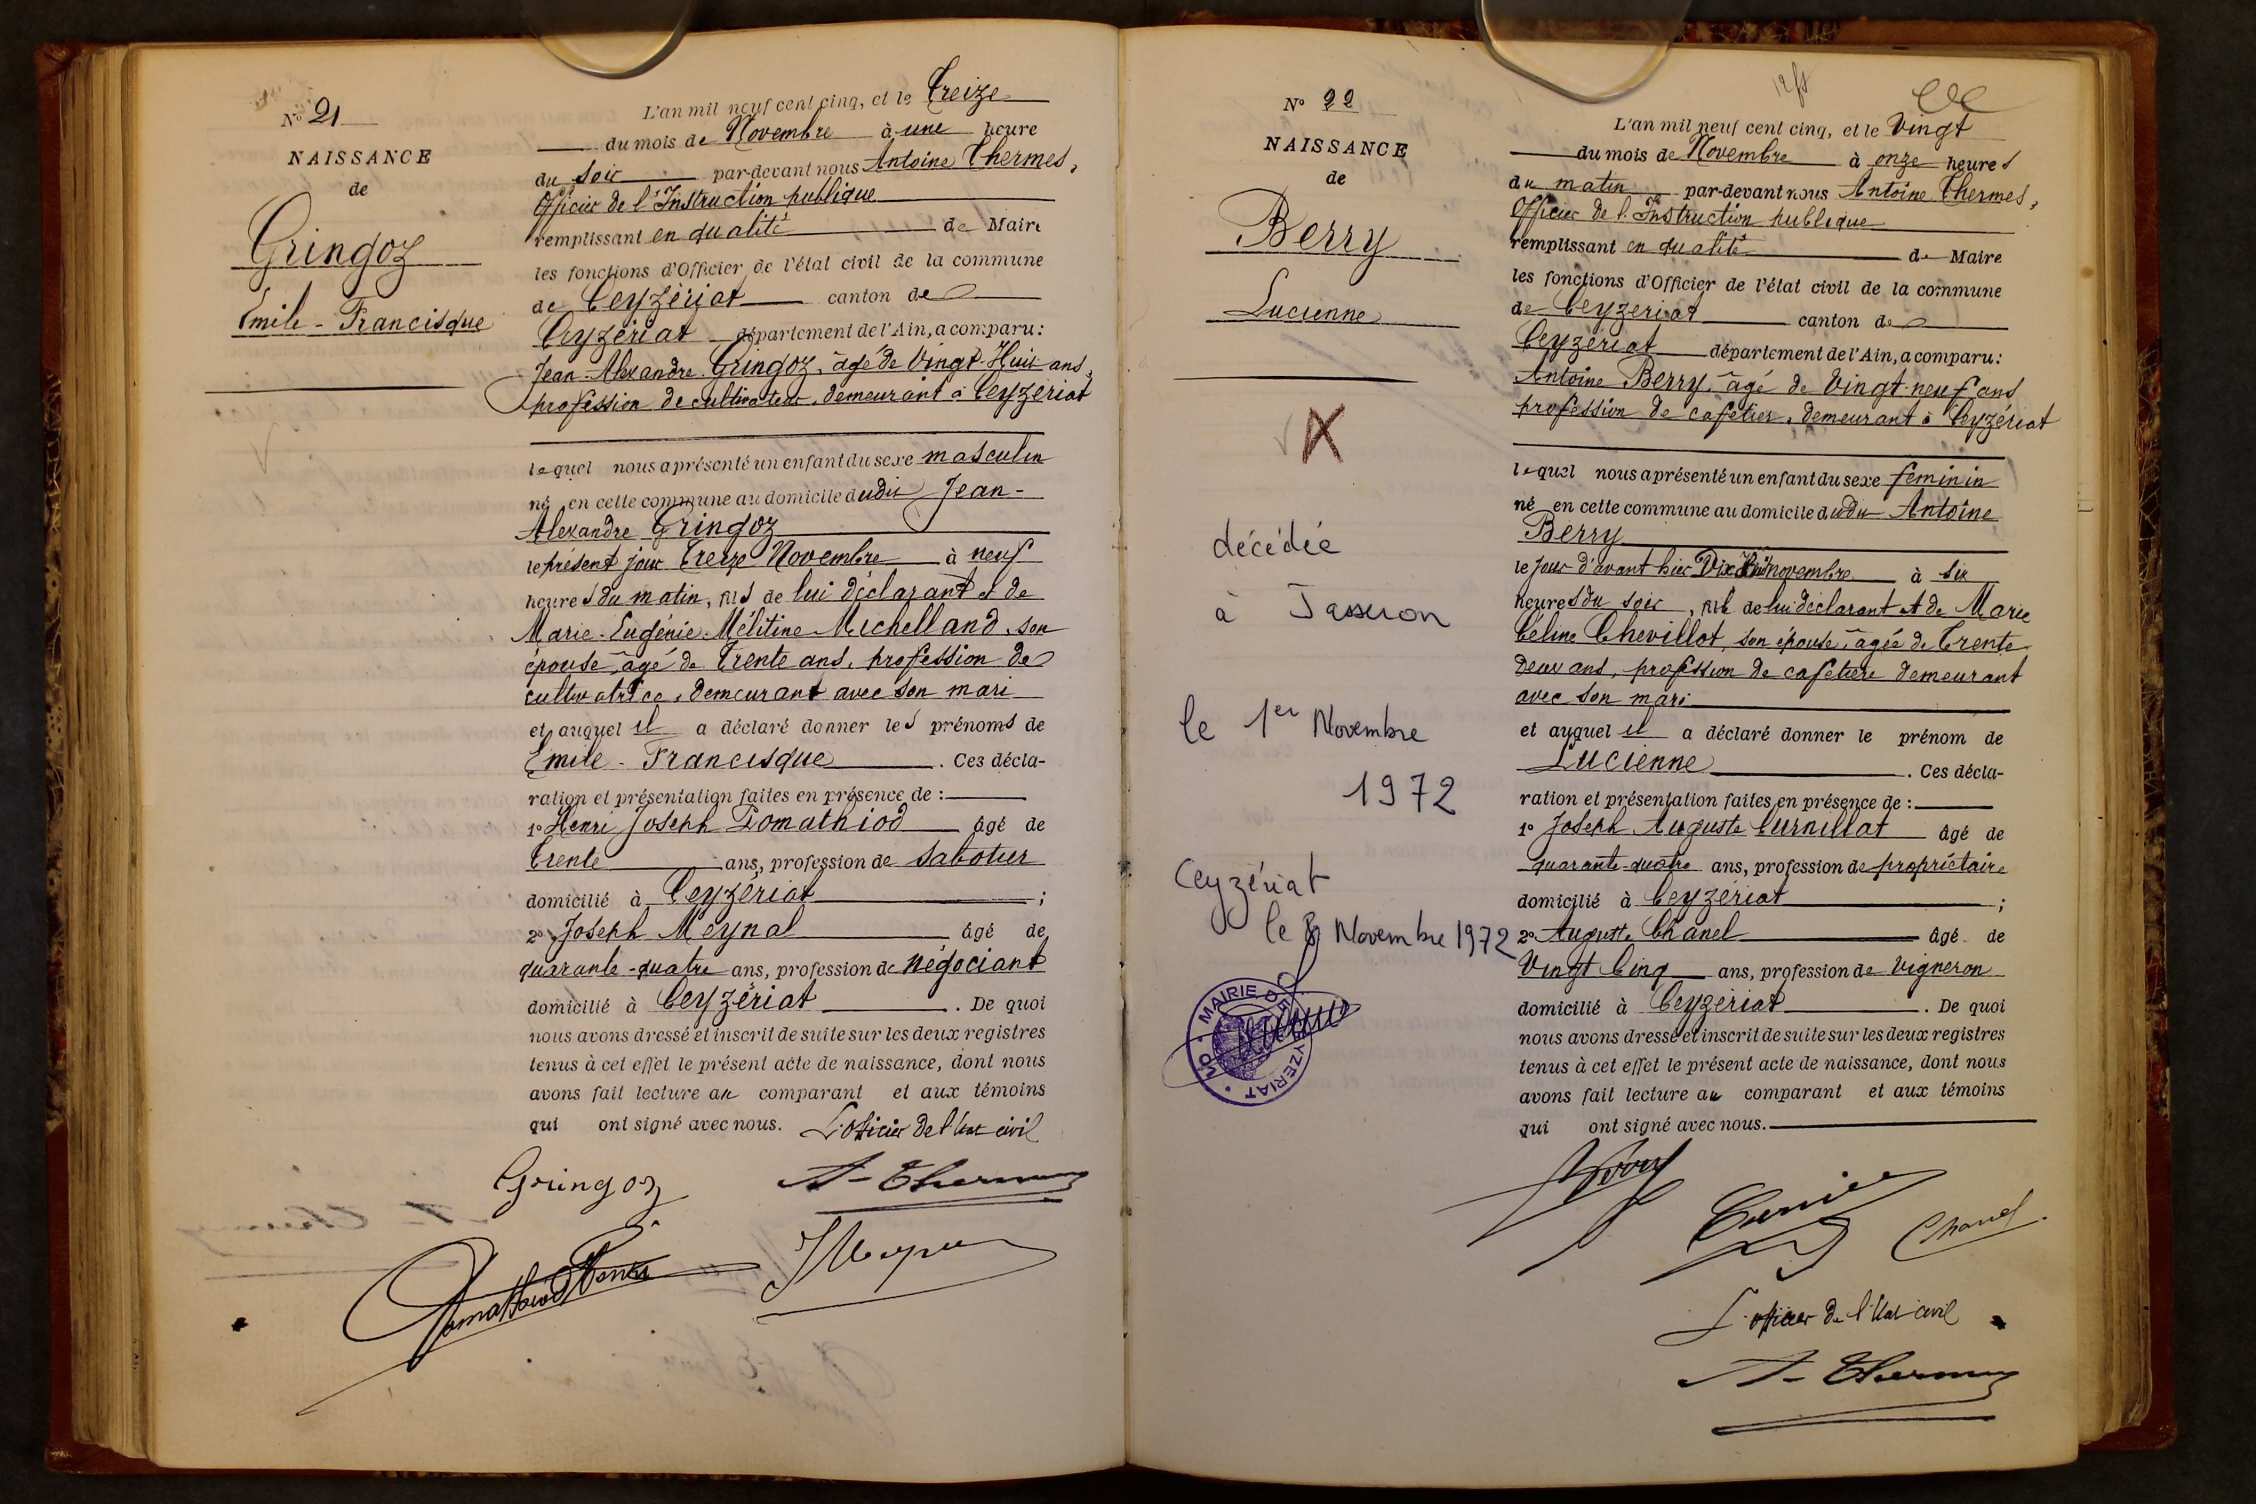 N° 21
NAISSANCE
de
Gringoz
Emile - Francisque
L'an mil neuf cent cinq, et le Treize
du mois de Novembre à une heure
du soir par-devant nous Antoine Thermes,
Officier de l'Instruction publique
remplissant en qualité de Maire
les fonctions d'Officier de l'état civil de la commune
de Ceyzériat canton de
Ceyzériat département de l'Ain, a comparu:
Jean-Alexandre Gringoz, âgé de Vingt-Huit ans,
profession de cultivateur, demeurant à Ceyzériat
lequel nous a présenté un enfant du sexe masculin
né en cette commune au domicile dudit Jean-
Alexandre Gringoz
le présent jour Treize Novembre à neuf
heures du matin, fils de lui déclarant et de
Marie-Eugénie-Mélitine Michelland, son
épouse, âgé de Trente ans, profession de
cultivatrice, demeurant avec son mari
et auquel il a déclaré donner les prénoms de
Emile - Francisque. Ces décla-
ration et présentation faites en présence de :
1° Henri Joseph Pomathiod âgé de
Trente ans, profession de sabotier
domicilié à Ceyzériat ;
2° Joseph Meynal âgé de
quarante-quatre ans, profession de négociant
domicilié à Ceyzériat. De quoi
nous avons dressé et inscrit de suite sur les deux registres
tenus à cet effet le présent acte de naissance, dont nous
avons fait lecture au comparant et aux témoins
qui ont signé avec nous. L'officier de l'état civil
Gringoz A- Thermes
Pomathiod Henri
N° 22
NAISSANCE
de
Berry
Lucienne
décédée
à Jasseron
le 1er Novembre
1972
Ceyzériat
le 8 Novembre 1972
MAIRIE DE CEYZERIAT
L'an mil neuf cent cinq, et le Vingt
du mois de Novembre à onze heures
du matin par-devant nous Antoine Thermes,
Officier de l'Instruction publique
remplissant en qualité de Maire
les fonctions d'Officier de l'état civil de la commune
de Ceyzériat canton de
Ceyzériat département de l'Ain, a comparu:
Antoine Berry, âgé de Vingt-neuf ans
profession de cafetier, demeurant à Ceyzériat
lequel nous a présenté un enfant du sexe féminin
né en cette commune au domicile dudit Antoine
Berry
le jour d'avant hier Dix Huit novembre à six
heures du soir, fille de lui déclarant et de Marie
Céline Chevillot, son épouse, âgée de Trente
deux ans, profession de cafetière demeurant
avec son mari
et auquel il a déclaré donner le prénom de
Lucienne. Ces décla-
ration et présentation faites en présence de :
1° Joseph Auguste Curnillat âgé de
quarante-quatre ans, profession de propriétaire
domicilié à Ceyzériat ;
2° Auguste Chanel âgé de
Vingt Cinq ans, profession de vigneron
domicilié à Ceyzériat. De quoi
nous avons dressé et inscrit de suite sur les deux registres
tenus à cet effet le présent acte de naissance, dont nous
avons fait lecture au comparant et aux témoins
qui ont signé avec nous.
Chanel
L'officier de l'état civil
A- Thermes